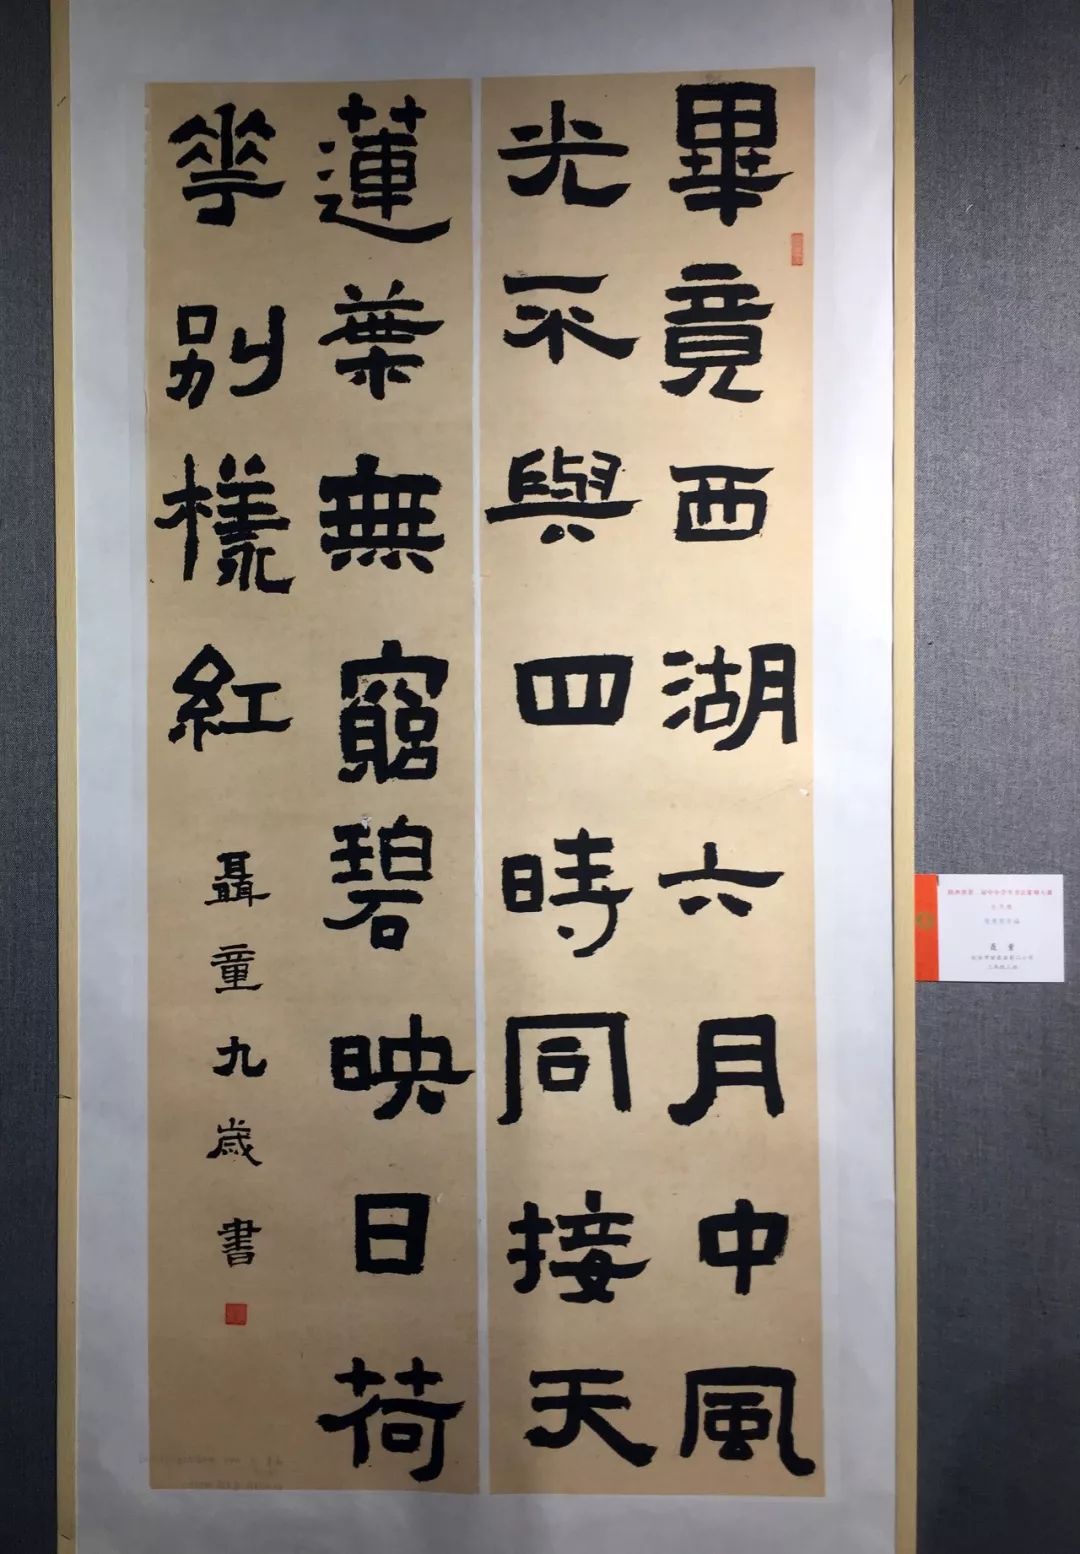 畢竟西湖六月中風
光不與四時同接天
蓮葉無窮碧映日荷
華別樣紅
聶童九歲書
聂 童